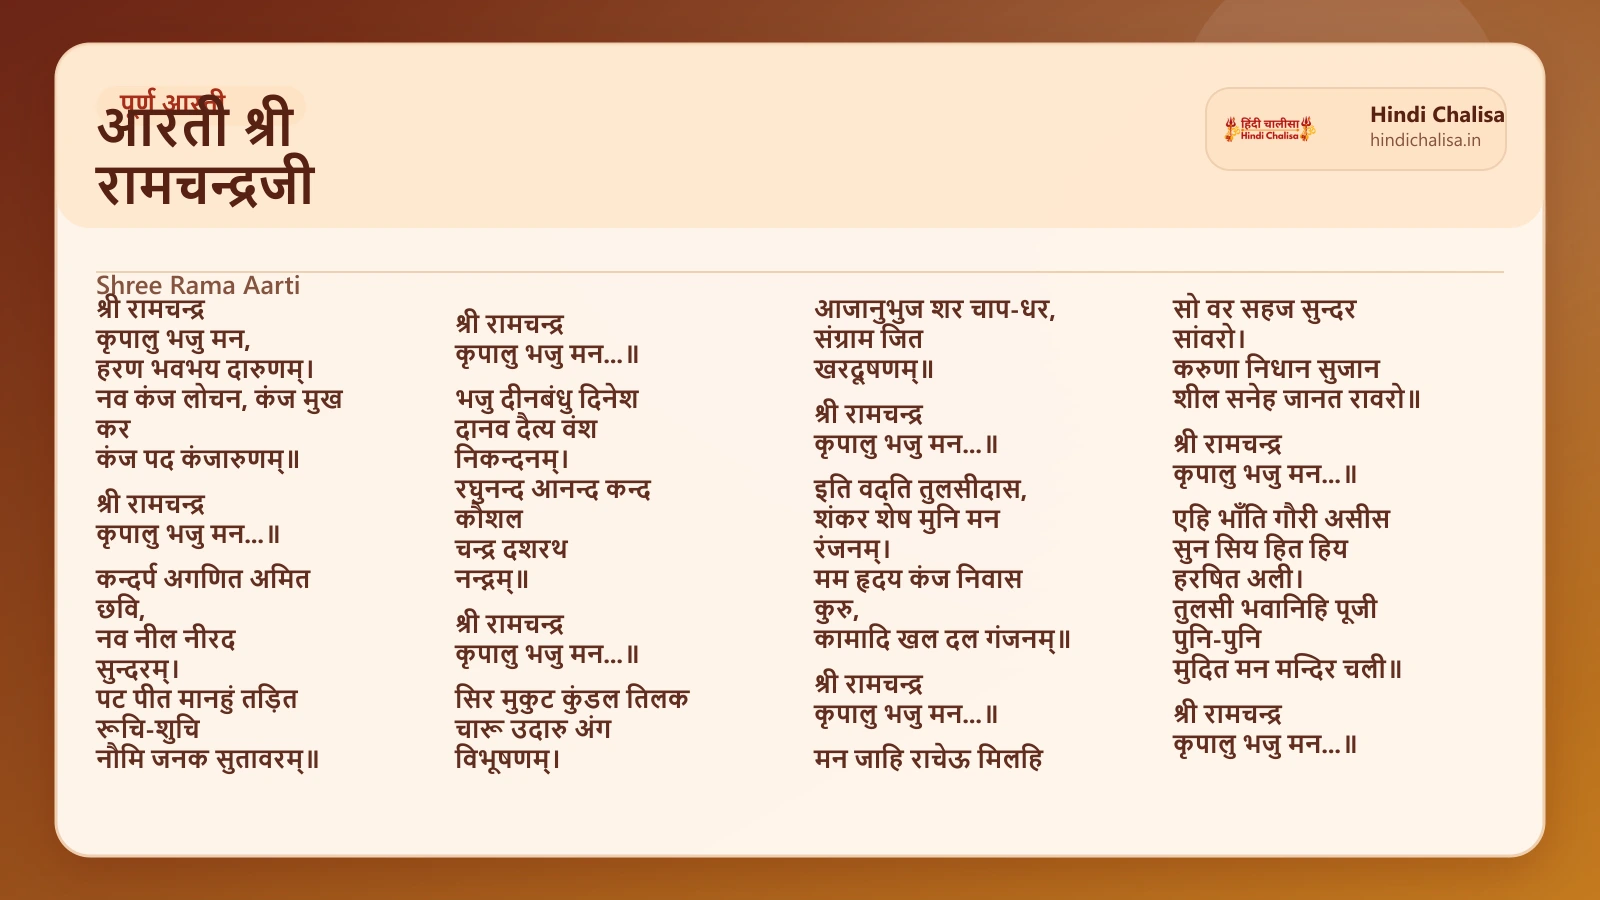 पूर्ण आरती
आरती श्री
रामचन्द्रजी
हिंदी चालीसा
Hindi Chalisa
Hindi Chalisa
hindichalisa.in
Shree Rama Aarti
श्री रामचन्द्र
कृपालु भजु मन,
हरण भवभय दारुणम्।
नव कंज लोचन, कंज मुख
कर
कंज पद कंजारुणम्॥
श्री रामचन्द्र
कृपालु भजु मन...॥
कन्दर्प अगणित अमित
छवि,
नव नील नीरद
सुन्दरम्।
पट पीत मानहुं तड़ित
रूचि-शुचि
नौमि जनक सुतावरम्॥
श्री रामचन्द्र
कृपालु भजु मन...॥
भजु दीनबंधु दिनेश
दानव दैत्य वंश
निकन्दनम्।
रघुनन्द आनन्द कन्द
कौशल
चन्द्र दशरथ
नन्द्नम्॥
श्री रामचन्द्र
कृपालु भजु मन...॥
सिर मुकुट कुंडल तिलक
चारू उदारु अंग
विभूषणम्।
आजानुभुज शर चाप-धर,
संग्राम जित
खरदूषणम्॥
श्री रामचन्द्र
कृपालु भजु मन...॥
इति वदति तुलसीदास,
शंकर शेष मुनि मन
रंजनम्।
मम हृदय कंज निवास
कुरु,
कामादि खल दल गंजनम्॥
श्री रामचन्द्र
कृपालु भजु मन...॥
मन जाहि राचेऊ मिलहि
सो वर सहज सुन्दर
सांवरो।
करुणा निधान सुजान
शील सनेह जानत रावरो॥
श्री रामचन्द्र
कृपालु भजु मन...॥
एहि भाँति गौरी असीस
सुन सिय हित हिय
हरषित अली।
तुलसी भवानिहि पूजी
पुनि-पुनि
मुदित मन मन्दिर चली॥
श्री रामचन्द्र
कृपालु भजु मन...॥